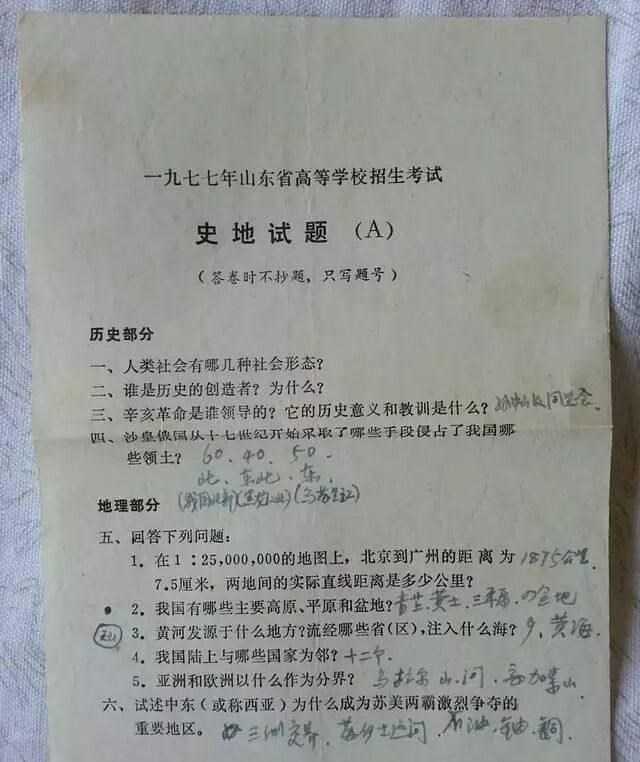 一九七七年山东省高等学校招生考试
史地试题（A）
（答卷时不抄题，只写题号）
历史部分
一、人类社会有哪几种社会形态？
二、谁是历史的创造者？为什么？
三、辛亥革命是谁领导的？它的历史意义和教训是什么？
四、沙皇俄国从十七世纪开始采取了哪些手段侵占了我国哪
些领土？ 60、40、50.
北、东北、东.
地理部分
五、回答下列问题：
1．在1：25,000,000的地图上，北京到广州的距离为 1875公里.
7.5厘米，两地间的实际直线距离是多少公里？
2．我国有哪些主要高原、平原和盆地？
3．黄河发源于什么地方？流经哪些省(区)，注入什么海？9、黄海
4．我国陆上与哪些国家为邻？十二个.
5．亚洲和欧洲以什么作为分界？乌拉尔山.河.高加索山
六、试述中东（或称西亚）为什么成为苏美两霸激烈争夺的
重要地区。 三洲交界. 苏伊士运河. 石油.铀.铜.